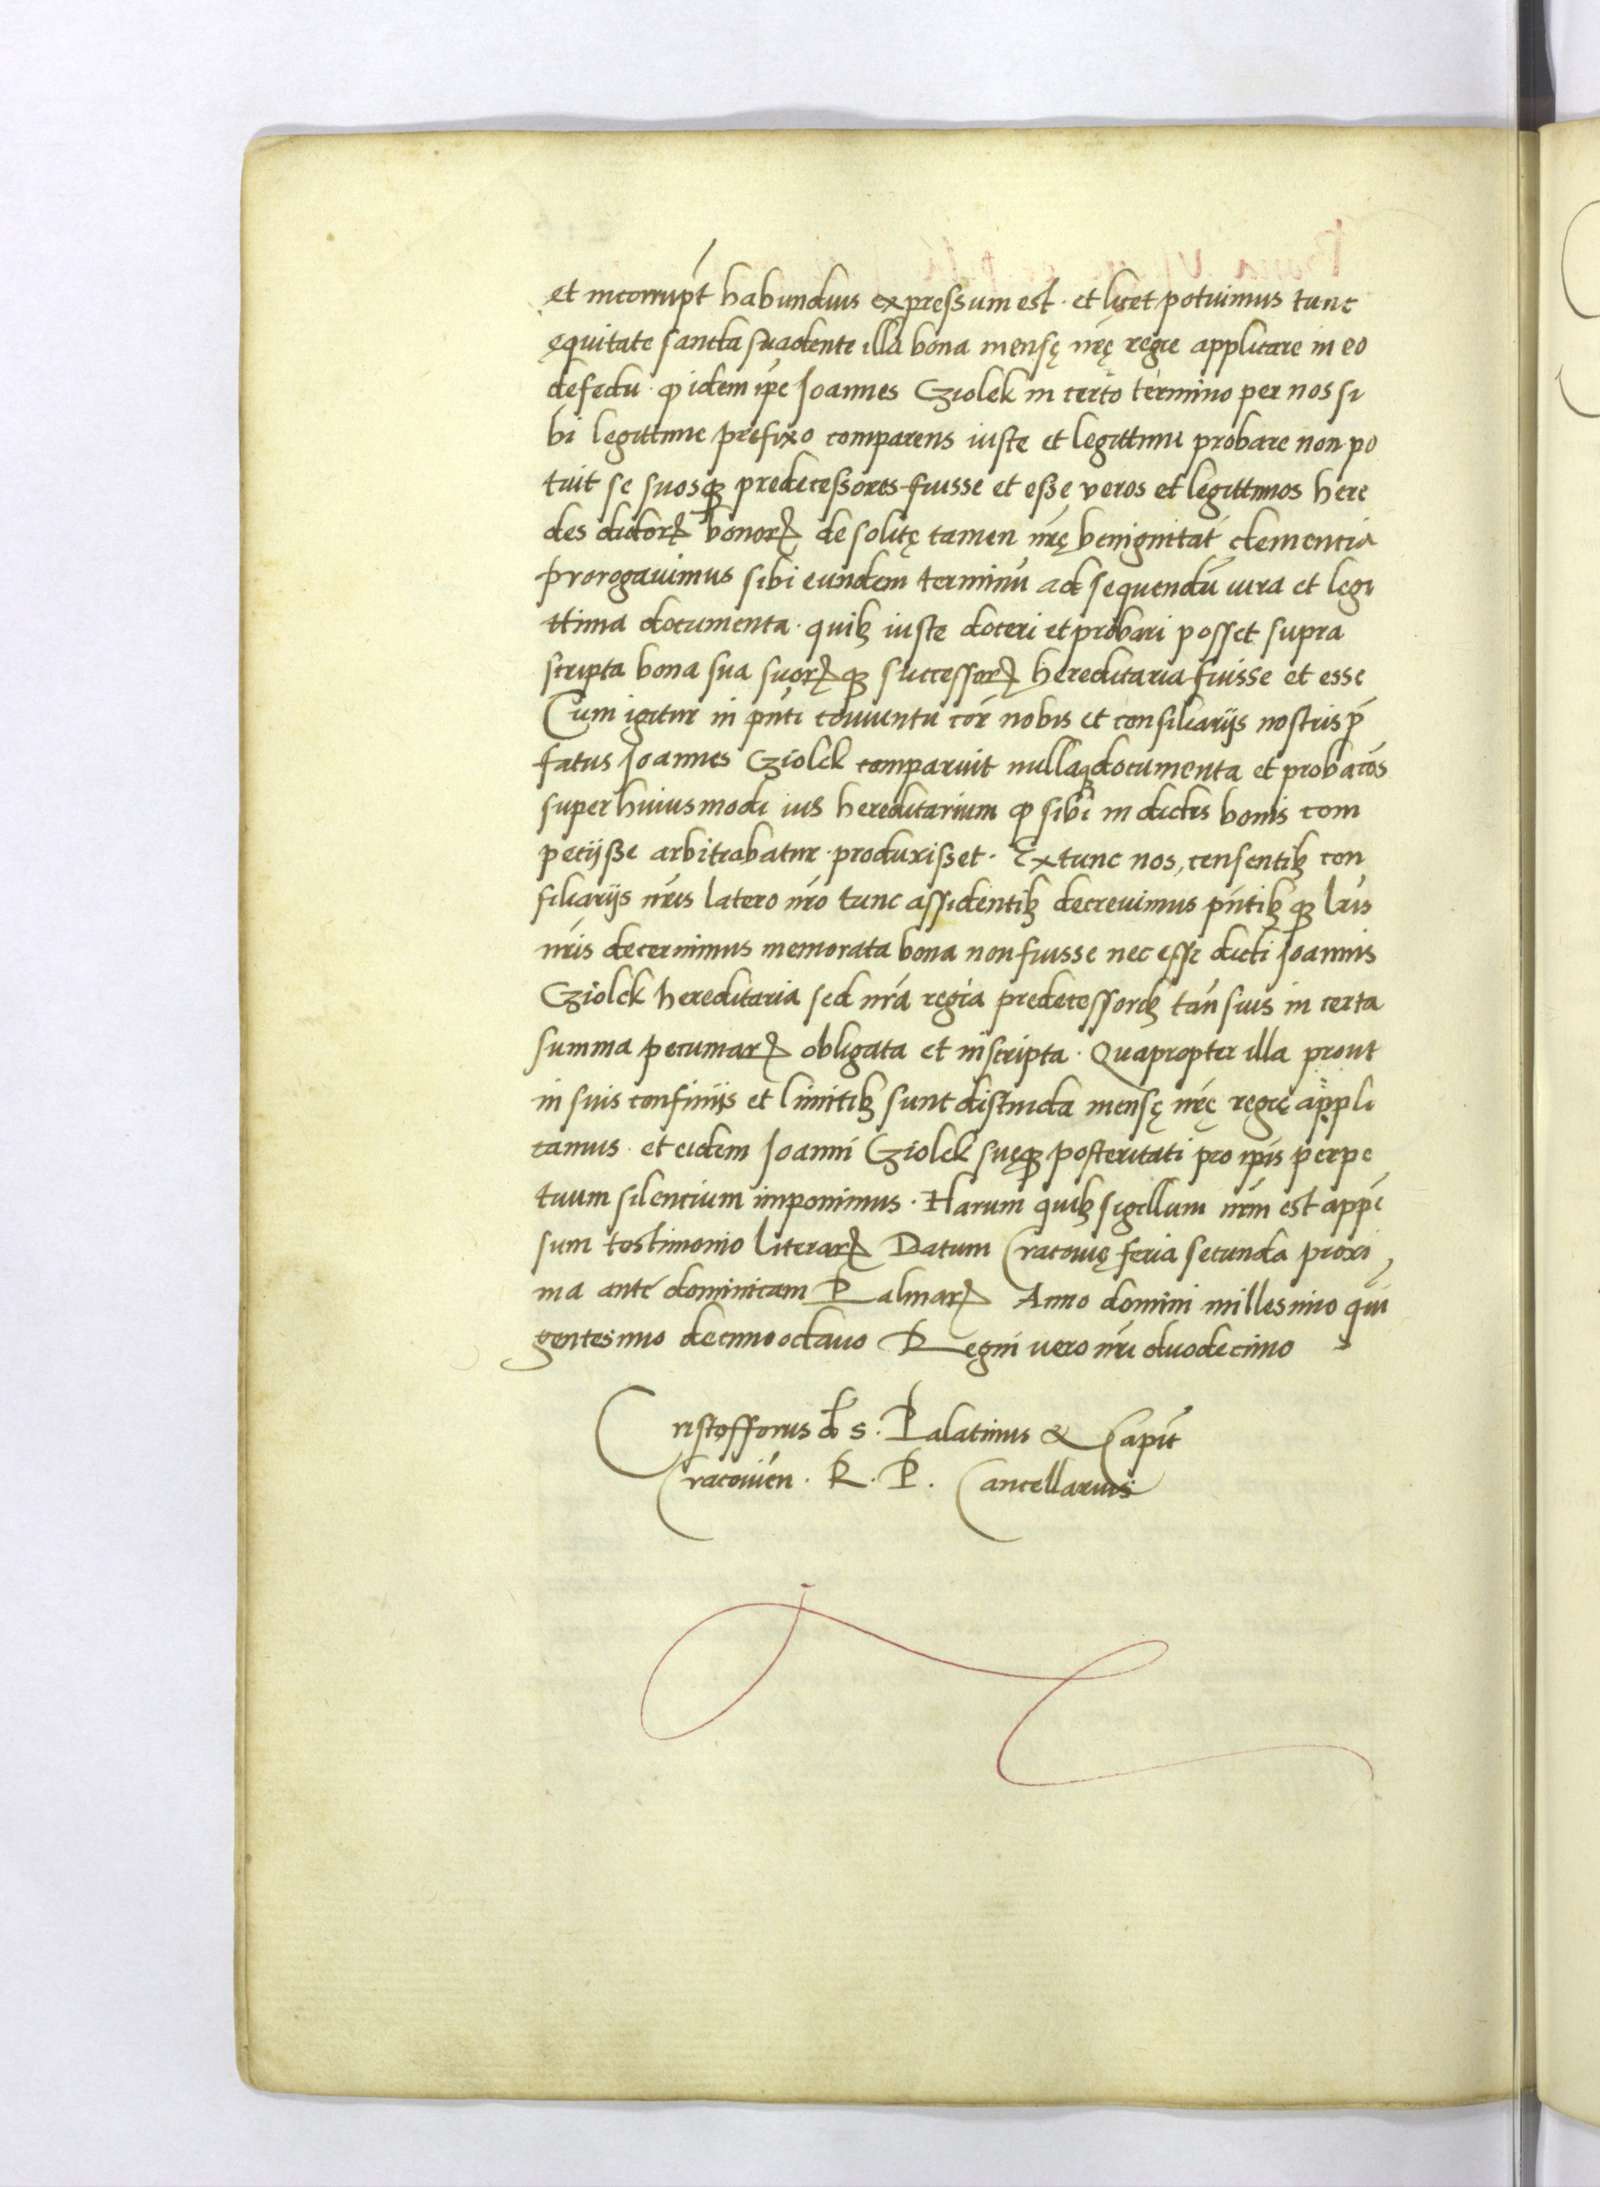 et incorrupt̄ habundius expressum est · et licet potuimus tunc
ęquitate sancta suadente illa bona mensę nr̄ę regie applicare in eo
defectu · ꝙ idem ip̄e Joannes Cziolek in certo termino per nos si
bi legittime prefixo comparens iuste et legittime probare non po
tuit se suosqꝫ predecessores fuisse et esse veros et legittimos here
des dictorꝝ bonorꝝ de solitę tamen nr̄ę benignitat̄ clementia
prorogauimus sibi eundem terminū ad sequendū iura et legi
ttima documenta · quibꝫ iuste doceri et probari posset supra
scripta bona sua suorꝝqꝫ successorꝝ hereditaria fuisse et esse
Cum igitur in pn̄ti conuentu cor̄ nobis et consiliarijs nostris p̄
fatus Joannes Cziolek comparuit nullaqꝫ documenta et probac̄oēs
super huiusmodi ius hereditarium ꝙ sibi in dictis bonis com
petijsse arbitrabatur · produxisset · Extunc nos, censentibꝫ con
siliarijs nr̄is latero nr̄o tunc assidentibꝫ decreuimus pn̄tibꝫqꝫ lr̄is
nr̄is decernimus memorata bona non fuisse nec esse dicti Joannis
Cziolek hereditaria sed nr̄a regia predecessoribꝫ tan̄ suis in certa
summa pecuniarꝝ obligata et inscripta · Quapropter illa prout
in suis confinijs et limitibꝫ sunt distincta mensę nr̄ę regię appli
camus · et eidem Joanni Cziolek suęqꝫ posteritati pro ip̄is perpe
tuum silencium imponimus · Harum quibꝫ sigillum nr̄m est appē
sum testimonio literarꝝ Datum Cracouię feria secunda proxi
ma ante dominicam Palmarꝝ Anno domini millesimo quī
gentesimo decimo octauo Regni vero nr̄i duodecimo
Cristofforus d̄ S. Palatinus & Capit̄
Cracouień · R · P · Cancellarius